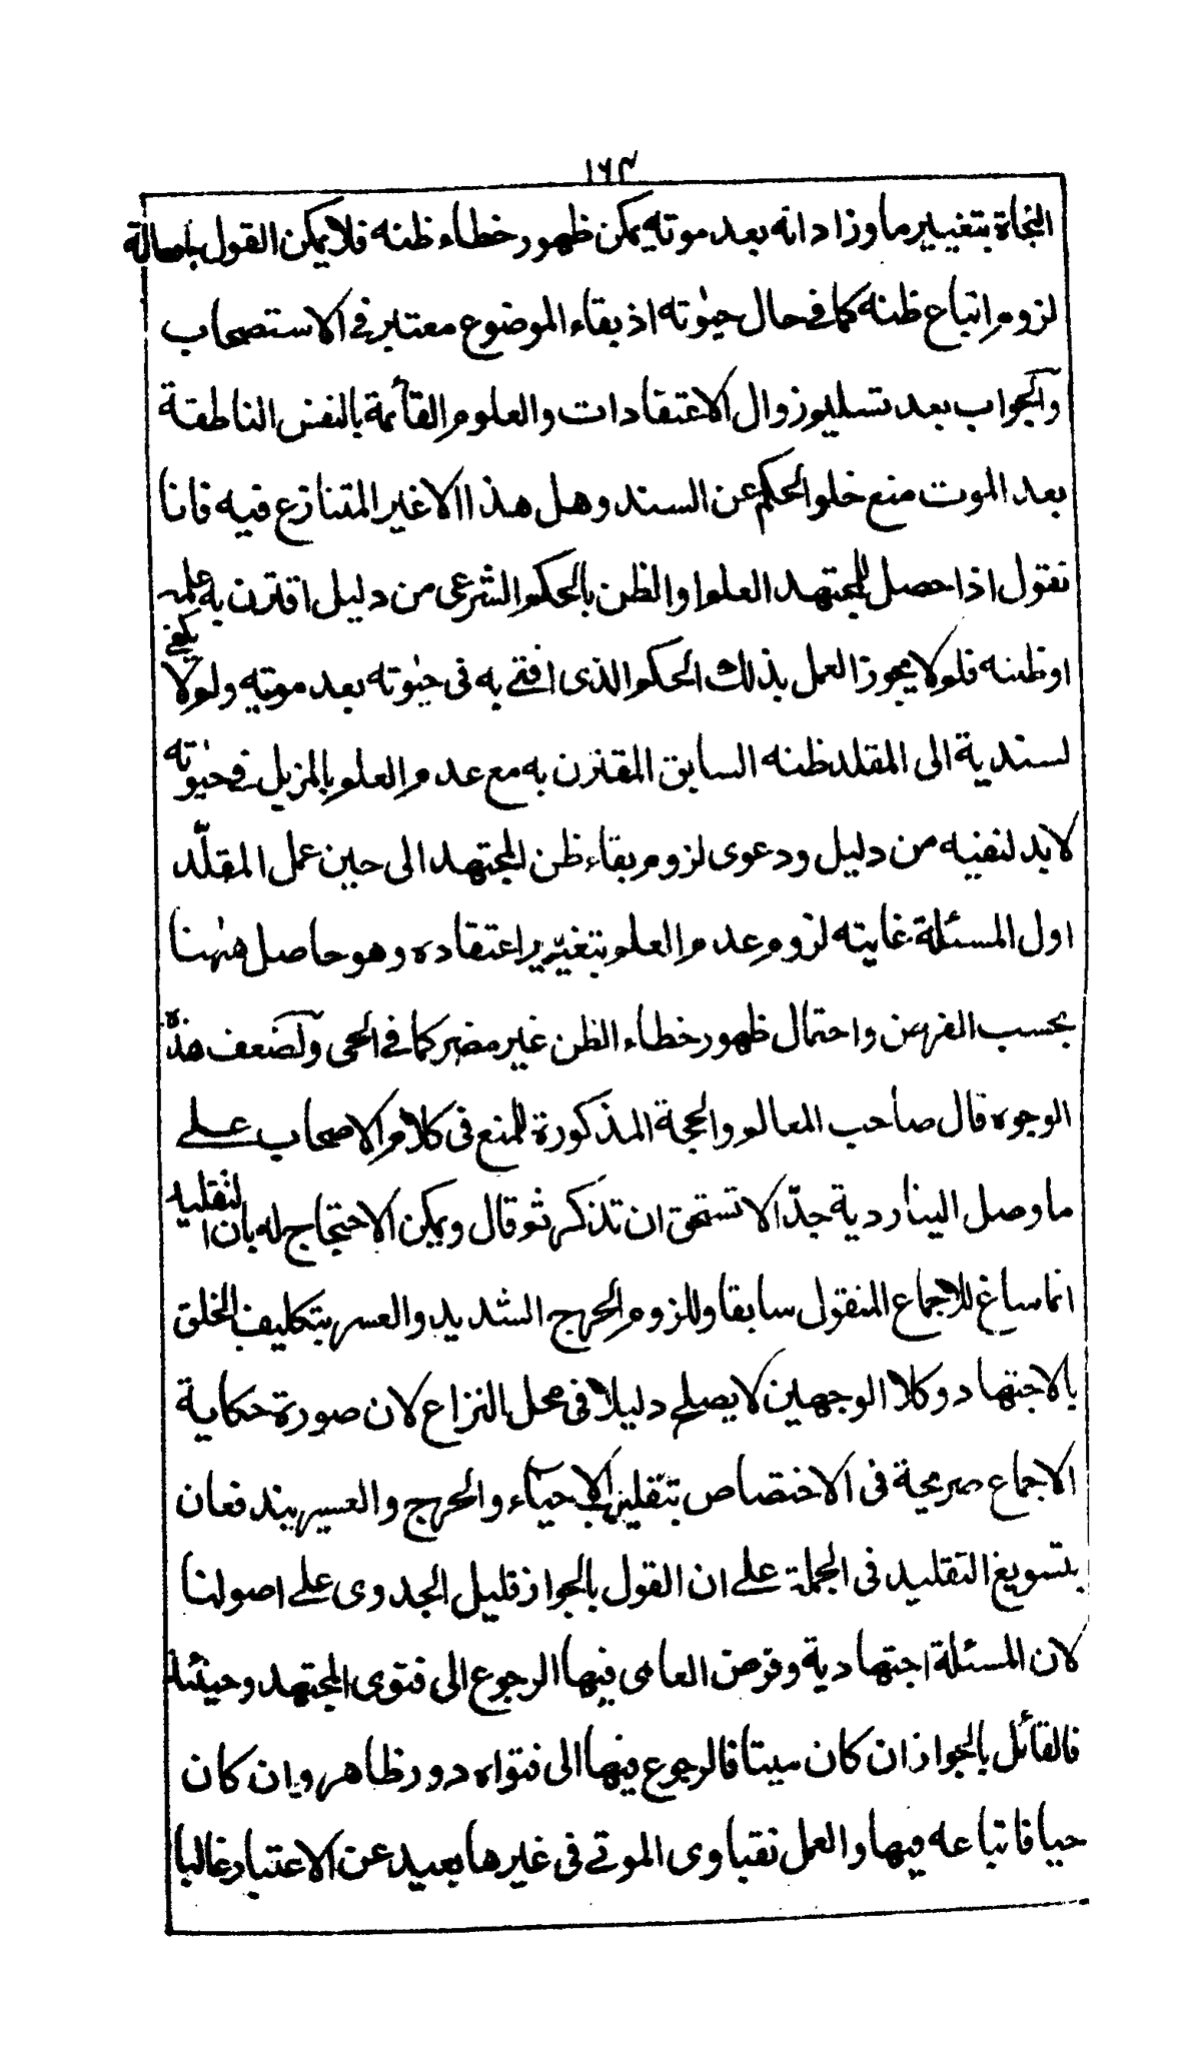 ١٦٣
النجاة بتغيير ما وزاد انه بعد موته يمكن ظهور خطاء ظنه فلا يمكن القول باصالة
لزوم اتباع ظنه كما في حال حيوته اذ بقاء الموضوع معتبر في الاستصحاب
والجواب بعد تسليم زوال الاعتقادات والعلوم القائمة بالنفس الناطقة
بعد الموت منع خلو الحكم عن السند وهل هذا الا غير المتنازع فيه فانا
نقول اذا حصل للمجتهد العلم او الظن بالحكم الشرعى من دليل اقترن به علمه
او ظنه فلو لا يجوز العمل بذلك الحكم الذى افتى به فى حيوته بعد موته ولو لا يكفى
لسندية الى المقلد ظنه السابق المقترن به مع عدم العلم بالمزيل فى حيوته
لا بد لنفيه من دليل ودعوى لزوم بقاء ظن المجتهد الى حين عمل المقلّد
اول المسئلة غايته لزوم عدم العلم بتغيّر اعتقاده وهو حاصل هٰهنا
بحسب الفرض واحتمال ظهور خطاء الظن غير مضر كما في الحى ولضعف هذه
الوجوه قال صاحب المعالم والحجة المذكورة للمنع فى كلام الاصحاب على
ما وصل الينا ردية جدّا لا تستحق ان تذكر ثم قال ويمكن الاحتجاج له بان التقليد
انما ساغ للاجماع المنقول سابقا وللزوم الحرج الشديد والعسر بتكليف الخلق
بالاجتهاد وكلا الوجهين لا يصلح دليلا فى محل النزاع لان صورة حكاية
الاجماع صريحة فى الاختصاص بتقليد الاحياء والحرج والعسر يندفعان
بتسويغ التقليد فى الجملة على ان القول بالجواز قليل الجدوى على اصولنا
لان المسئلة اجتهادية وفرض العامى فيها الرجوع الى فتوى المجتهد وحينئذ
فالقائل بالجواز ان كان ميتا فالرجوع فيها الى فتواه دور ظاهر وان كان
حيا فاتباعه فيها والعمل بفتاوى الموتى فى غيرها بعيد عن الاعتبار غالبا